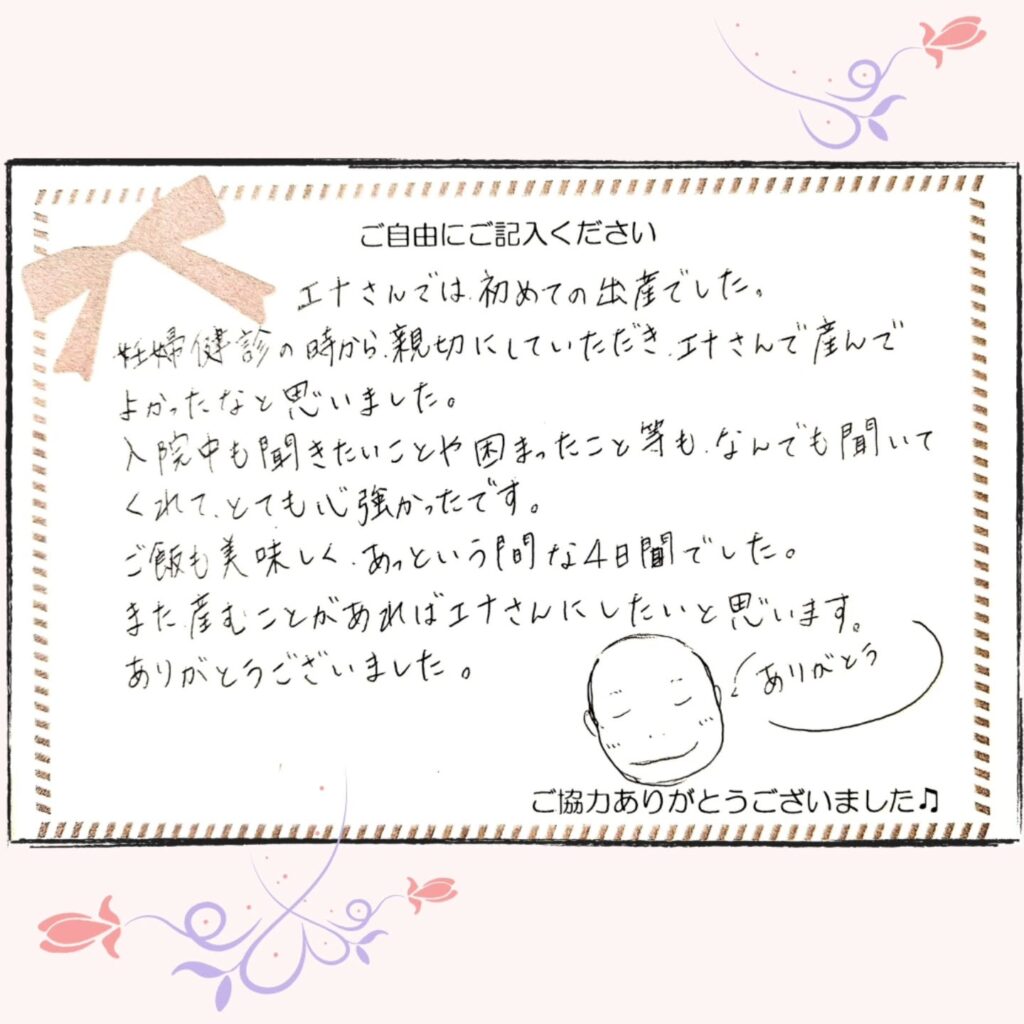 ご自由にご記入ください
エナさんでは、初めての出産でした。
妊婦健診の時から、親切にしていただき、エナさんで産んで
よかったなと思いました。
入院中も聞きたいことや困まったこと等も、なんでも聞いて
くれて、とても心強かったです。
ご飯も美味しく、あっという間な4日間でした。
また、産むことがあればエナさんにしたいと思います。
ありがとうございました。
ありがとう
ご協力ありがとうございました♫